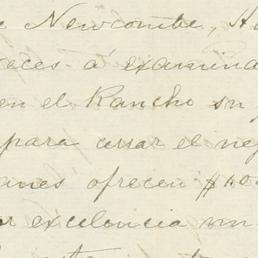 e Newcombe, H
eces a' examina
en el Rancho su
para cerrar el ne
anes ofrecen $40
r excelencia un